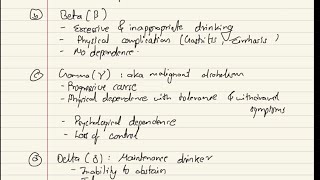 (b) Beta (β)
- Excessive & inappropriate drinking
- Physical complication (Gastritis, Cirrhosis)
- No dependence.
(c) Gamma (γ) : aka malignant alcoholism
- Progressive course
- Physical dependence with tolerance & withdrawal
symptoms
- Psychological dependence
- Loss of control
Delta (δ) : Maintenance drinker
- Inability to abstain